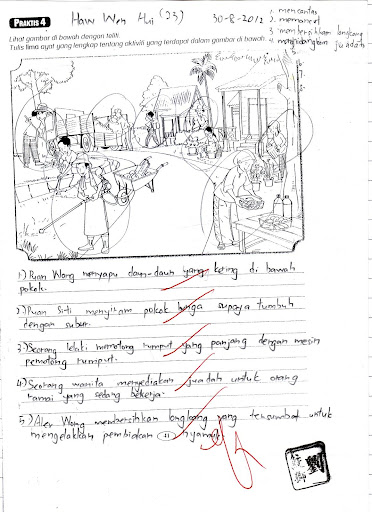 PRAKTIS 4
Haw Wen Hui (23)
30-8-2012
1. mencantas
2.
3. membersihkan longkang
4. menghidangkan juadah
Lihat gambar di bawah dengan teliti.
Tulis lima ayat yang lengkap tentang aktiviti yang terdapat dalam gambar di bawah.
1.) Puan Wong menyapu daun-daun yang kering di bawah
pokok.
2.) Puan Siti menyiram pokok bunga supaya tumbuh
dengan subur.
3.) Seorang lelaki memotong rumput yang panjang dengan mesin
pemotong rumput.
4.) Seorang wanita menyediakan juadah untuk orang
ramai yang sedang bekerja.
5.) Encik Wong membersihkan longkang yang tersumbat untuk
mengelakkan pembiakan nyamuk.